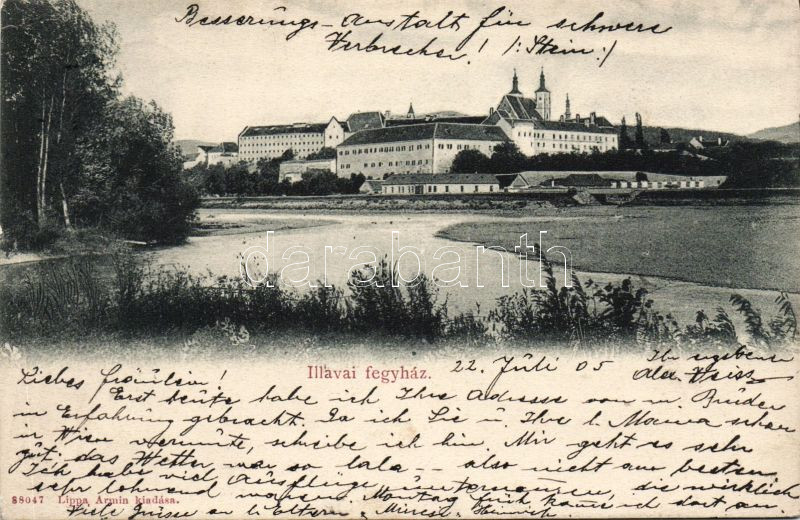 Besserungs-Anstalt für schwere
Verbrecher! /: Stein :/
darabanth
Illavai fegyház.
22. Juli 05
Ihr ergebener
Alex Weisz
Liebes Fräulein!
Erst heute habe ich Ihre Adresse von m. Bruder
in Erfahrung gebracht. Da ich Sie u. Ihre l. Mama schon
in Wien vermute, schreibe ich hin. Mir geht es sehr
gut. das Wetter war so lala — also nicht am besten.
Ich habe viel Ausflüge unternommen, die wirklich
sehr lohnend waren. Montag früh kam ich dort an.
Viele Grüsse an l. Eltern, Heinrich
88047 Lippa Ármin kiadása.